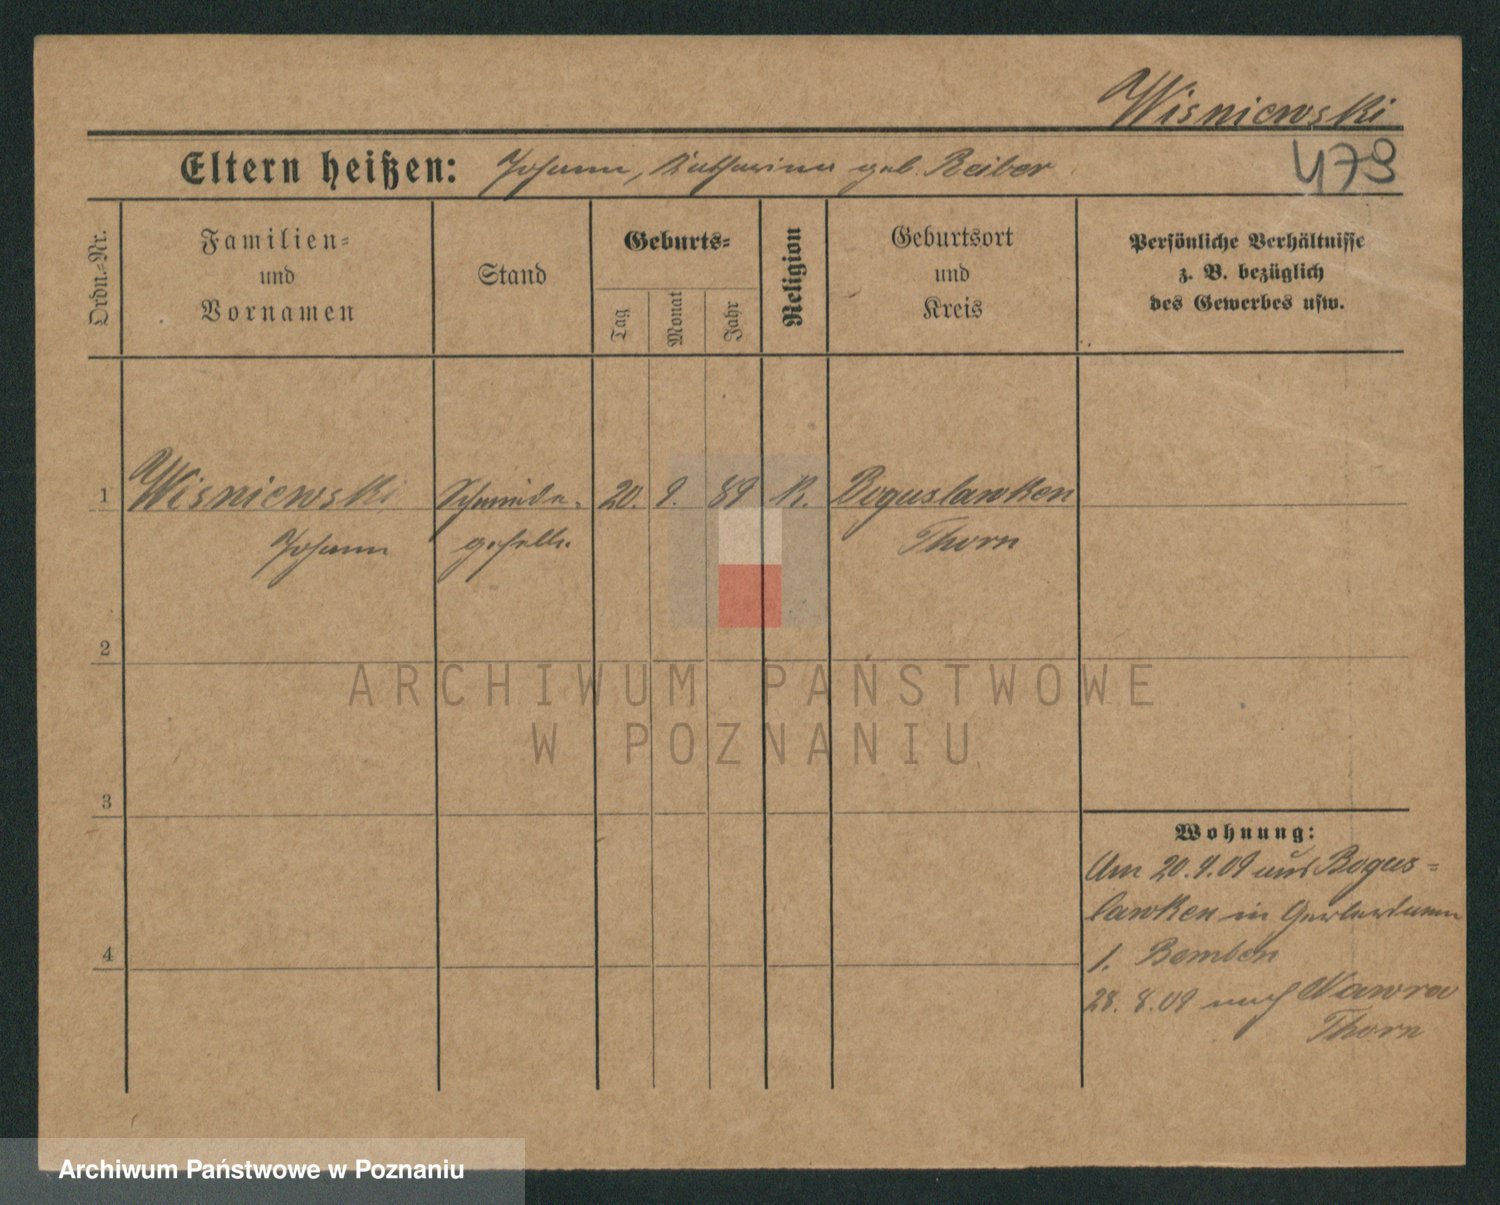 Wisniewski
Eltern heißen: Johann, Katharina geb. Reiber
479
Ordn.-Nr.
Familien-
und
Vornamen
Stand
Geburts-
Tag
Monat
Jahr
Religion
Geburtsort
und
Kreis
Persönliche Verhältnisse
z. B. bezüglich
des Gewerbes usw.
1 Wisniewski Schmiede- 20. 9. 89 K. Boguslawken
Johann geselle. Thorn
2
ARCHIWUM PAŃSTWOWE
W POZNANIU
3
Wohnung:
Am 20.4.09 aus Bogus-
lawken in Gerberdamm
4
1. Bemben
28. 8. 09 nach Nawra
Thorn
Archiwum Państwowe w Poznaniu